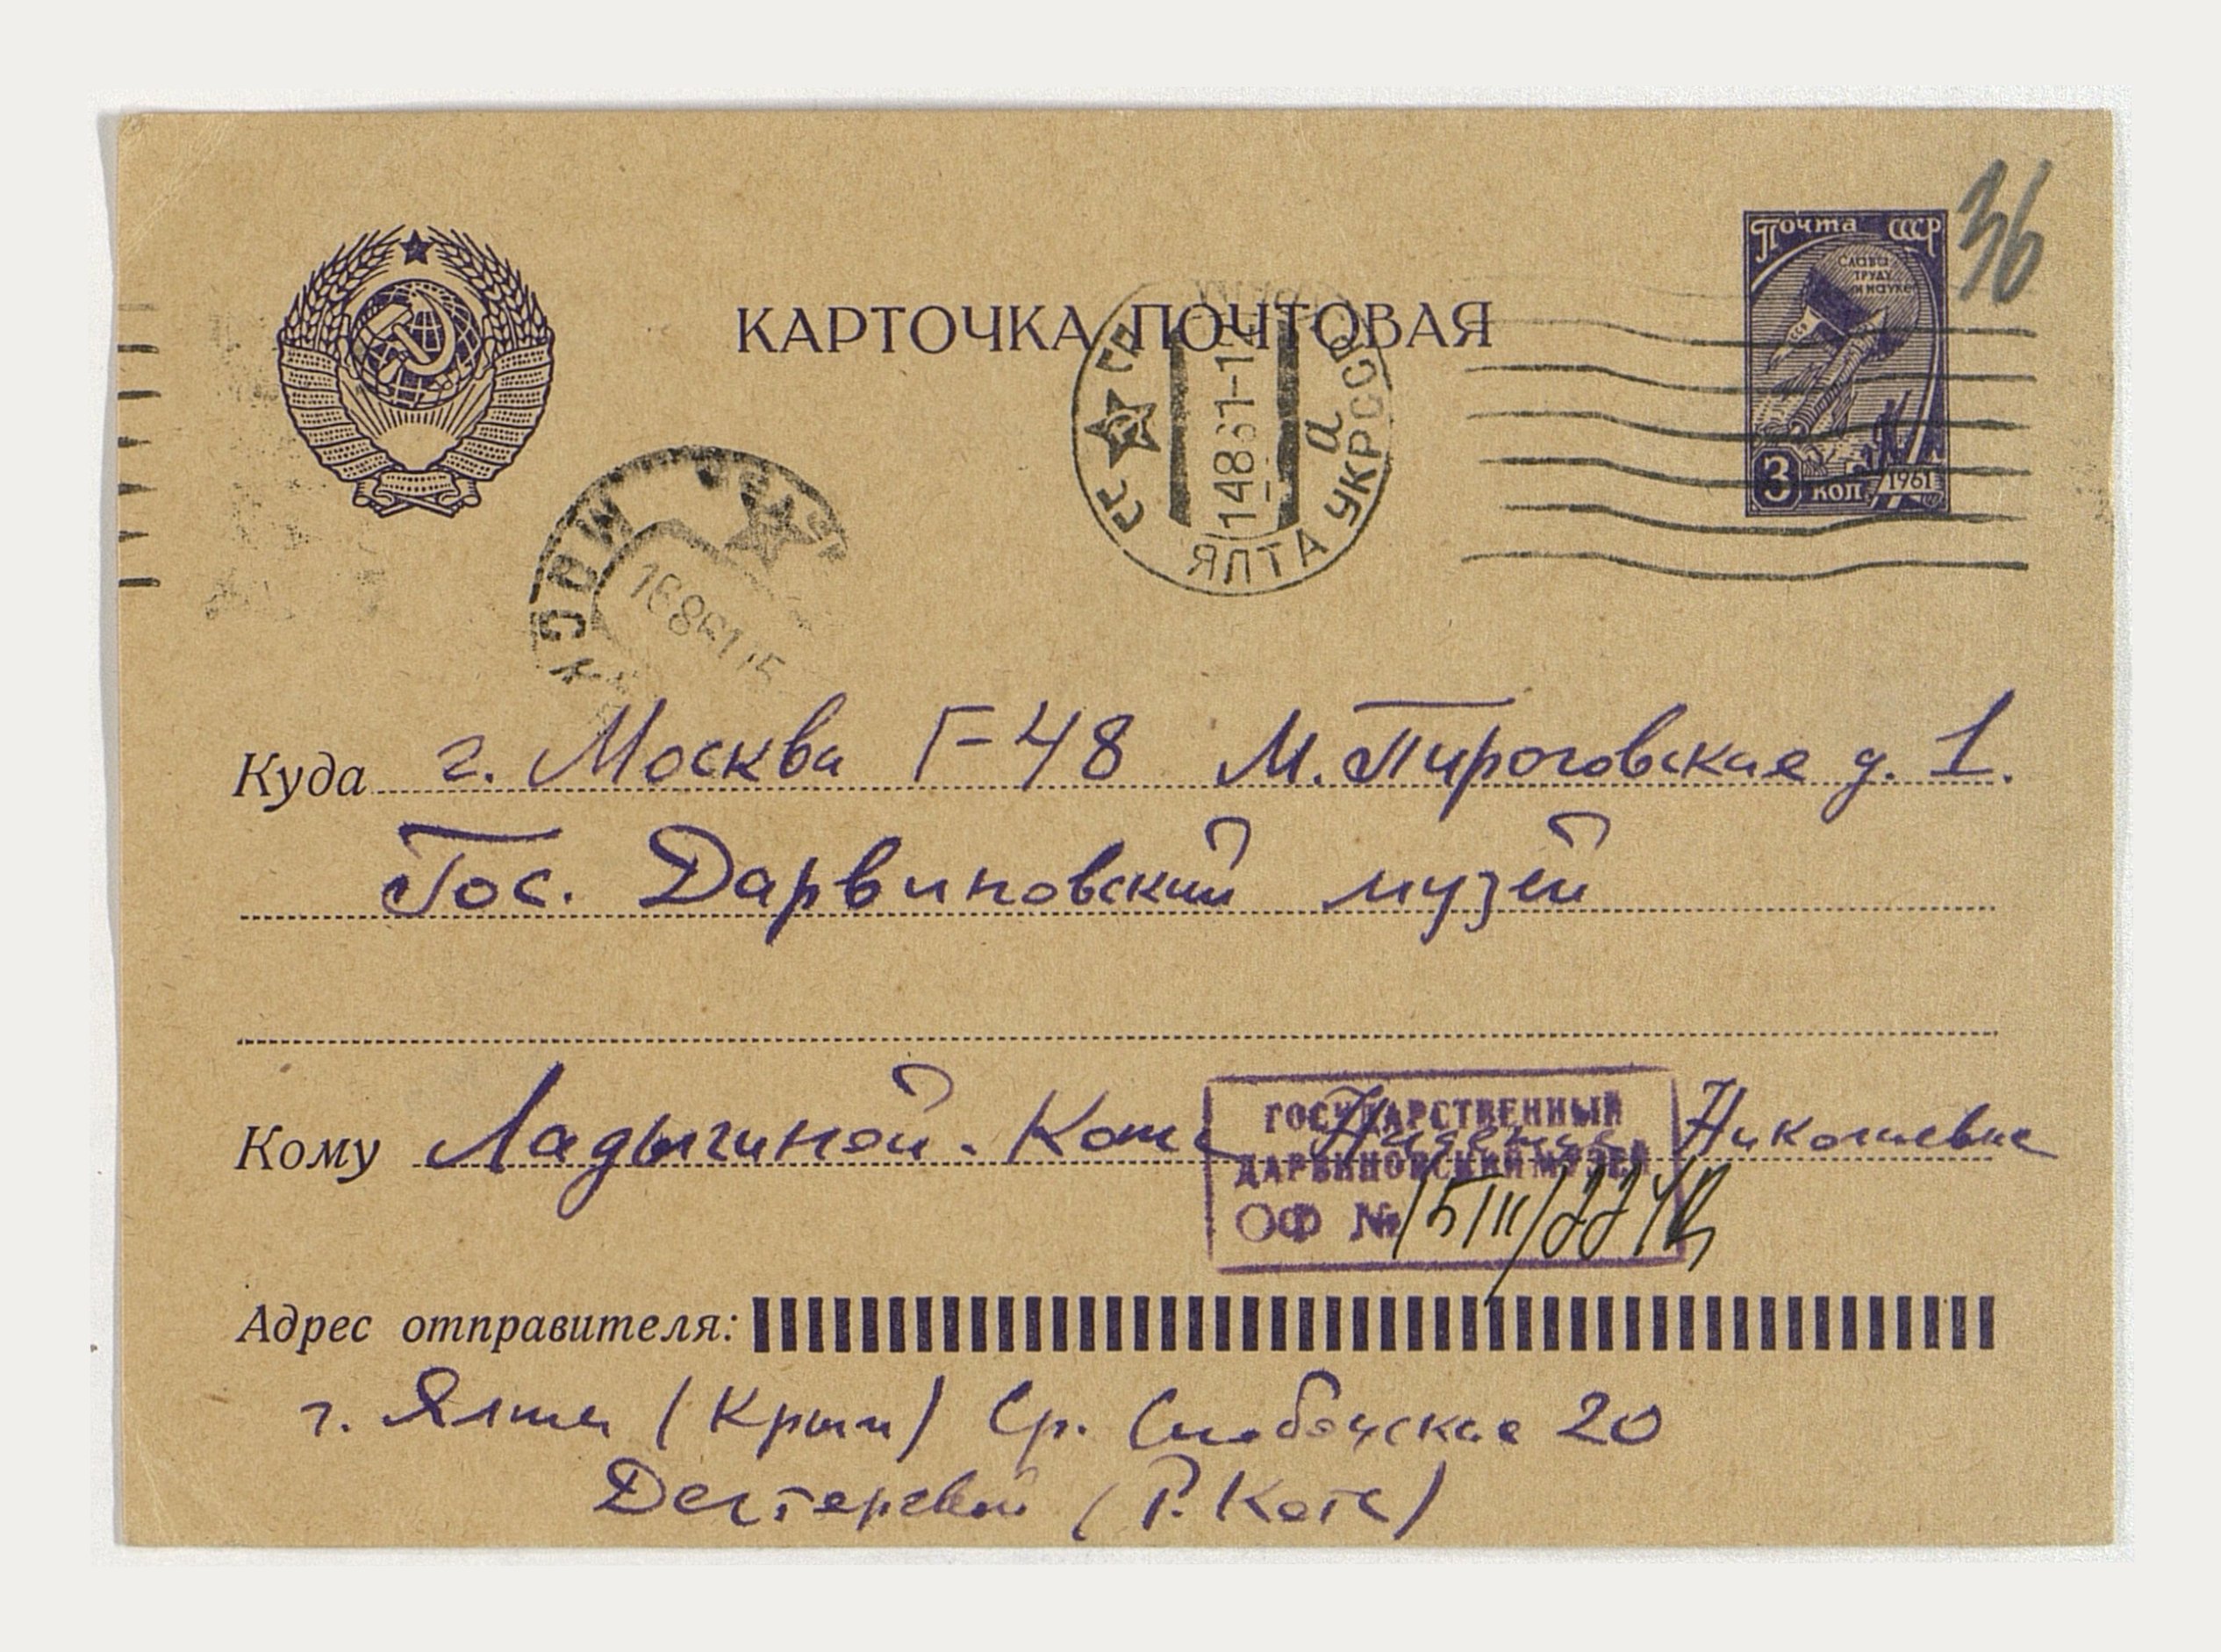 Почта СССР
36
СЛАВА
ТРУДУ
И НАУКЕ
3 КОП. 1961
КАРТОЧКА ПОЧТОВАЯ
ЯЛТА УКРССР
а
МОСК
Куда г. Москва Г-48 М. Пироговская д. 1.
Гос. Дарвиновский музей
Кому Ладыгиной-Котс Надежде Николаевне
ГОСУДАРСТВЕННЫЙ
ДАРВИНОВСКИЙ МУЗЕЙ
ОФ №
Адрес отправителя:
г. Ялта (Крым) Ср. Слободская 20
Дегтеревой (Р. Котс)